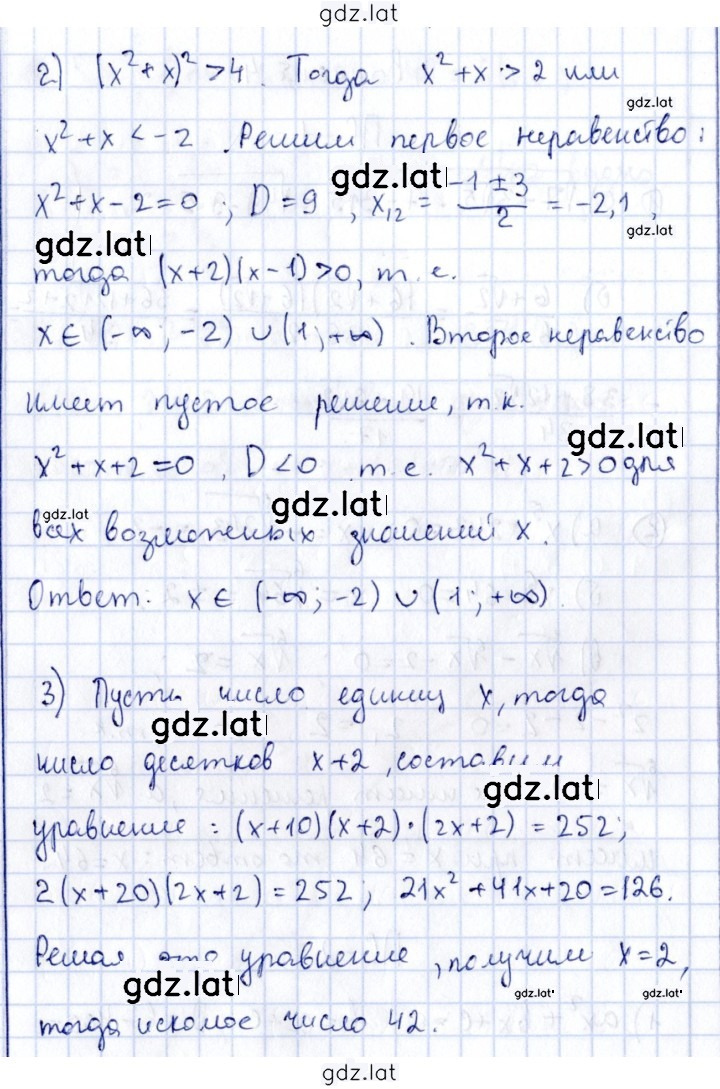 gdz.lat
2) (x²+x)²>4. Тогда x²+x>2 или
gdz.lat
x²+x<-2. Решим первое неравенство:
gdz.lat
x²+x-2=0; D=9, x₁₂ = (-1±3)/2 = -2,1,
gdz.lat
gdz.lat
тогда (x+2)(x-1)>0, т.е.
x∈(-∞;-2)∪(1;+∞). Второе неравенство
имеет пустое решение, т.к.
gdz.lat
x²+x+2=0, D<0 т.е. x²+x+2>0 для
gdz.lat
gdz.lat
всех возможных значений x.
Ответ: x∈(-∞;-2)∪(1;+∞)
3) Пусть число единиц x, тогда
gdz.lat
число десятков x+2, составим
gdz.lat
уравнение: (x+10)(x+2)·(2x+2)=252;
2(x+20)(2x+2)=252; 21x²+41x+20=126.
Решая это уравнение, получим x=2,
gdz.lat
gdz.lat
gdz.lat
тогда искомое число 42.
gdz.lat